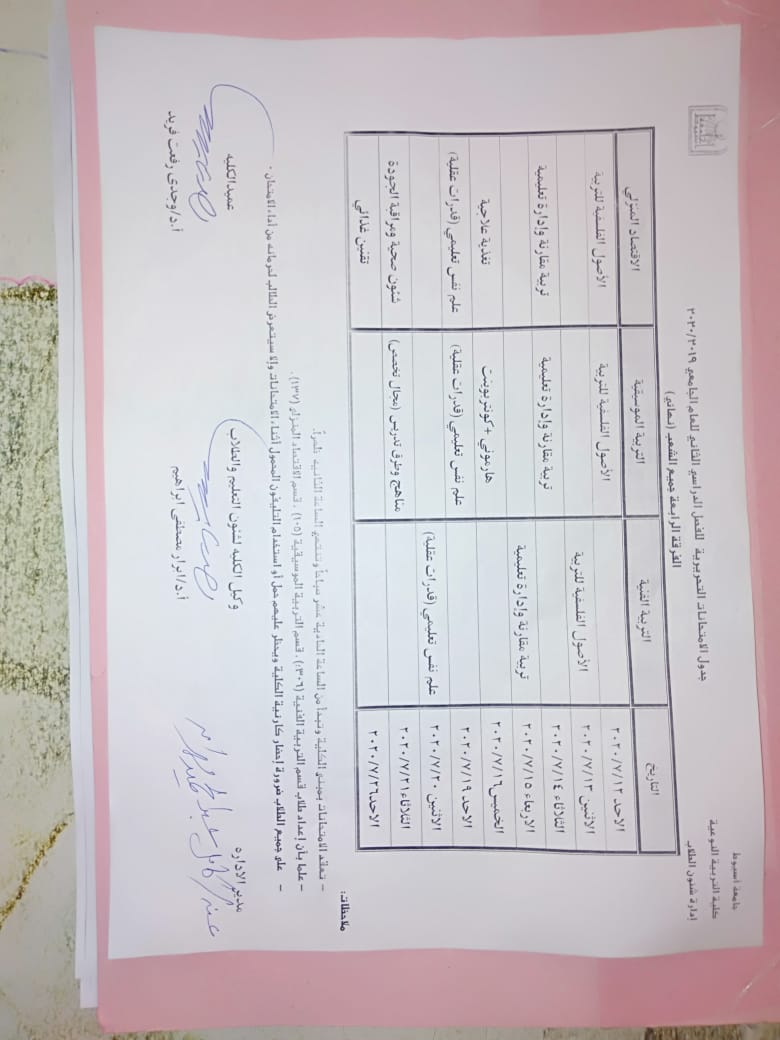 جامعة اسيوط
كلية التربية النوعية
إدارة شئون الطلاب
جدول الامتحانات التحريرية للفصل الدراسي الثاني للعام الجامعي ٢٠٢٠/٢٠١٩
الفرقة الرابعة جميع الشعب (نهائي)
التاريخ التربية الفنية التربية الموسيقية الاقتصاد المنزلي
الاحد ٢٠٢٠/٧/١٢ الأصول الفلسفية للتربية الأصول الفلسفية للتربية
الاثنين ٢٠٢٠/٧/١٣ الأصول الفلسفية للتربية
الثلاثاء ٢٠٢٠/٧/١٤ تربية مقارنة وإدارة تعليمية تربية مقارنة وإدارة تعليمية
الاربعاء ٢٠٢٠/٧/١٥ تربية مقارنة وإدارة تعليمية
الخميس ٢٠٢٠/٧/١٦ هارموني + كونتربوينت تغذية علاجية
الاحد ٢٠٢٠/٧/١٩ علم نفس تعليمي (قدرات عقلية) علم نفس تعليمي (قدرات عقلية)
الاثنين ٢٠٢٠/٧/٢٠ علم نفس تعليمي (قدرات عقلية)
الثلاثاء ٢٠٢٠/٧/٢١ مناهج وطرق تدريس (مجال تخصص) شئون صحية ومراقبة الجودة
الاحد ٢٠٢٠/٧/٢٦ تقنين غذائي
ملاحظات:
– تعقد الامتحانات بمبنى الكلية وتبدأ من الساعة الحادية عشر صباحاً وتنتهي الساعة الثانية ظهراً.
– علما بأن إعداد طلاب قسم التربية الفنية (٣٠٦)، قسم التربية الموسيقية (١٠٥)، قسم الاقتصاد المنزلي (١٣٧).
– على جميع الطلاب ضرورة إحضار كارنية الكلية ويحظر عليهم حمل أو استخدام التليفون المحمول أثناء الامتحانات وإلا سيتعرض الطالب لحرمانه من أداء الامتحان.
مدير الاداره وكيل الكليه لشئون التعليم والطلاب عميد الكليه
أ.د/ابرار مصطفى ابراهيم أ.د/وجدى رفعت فريد